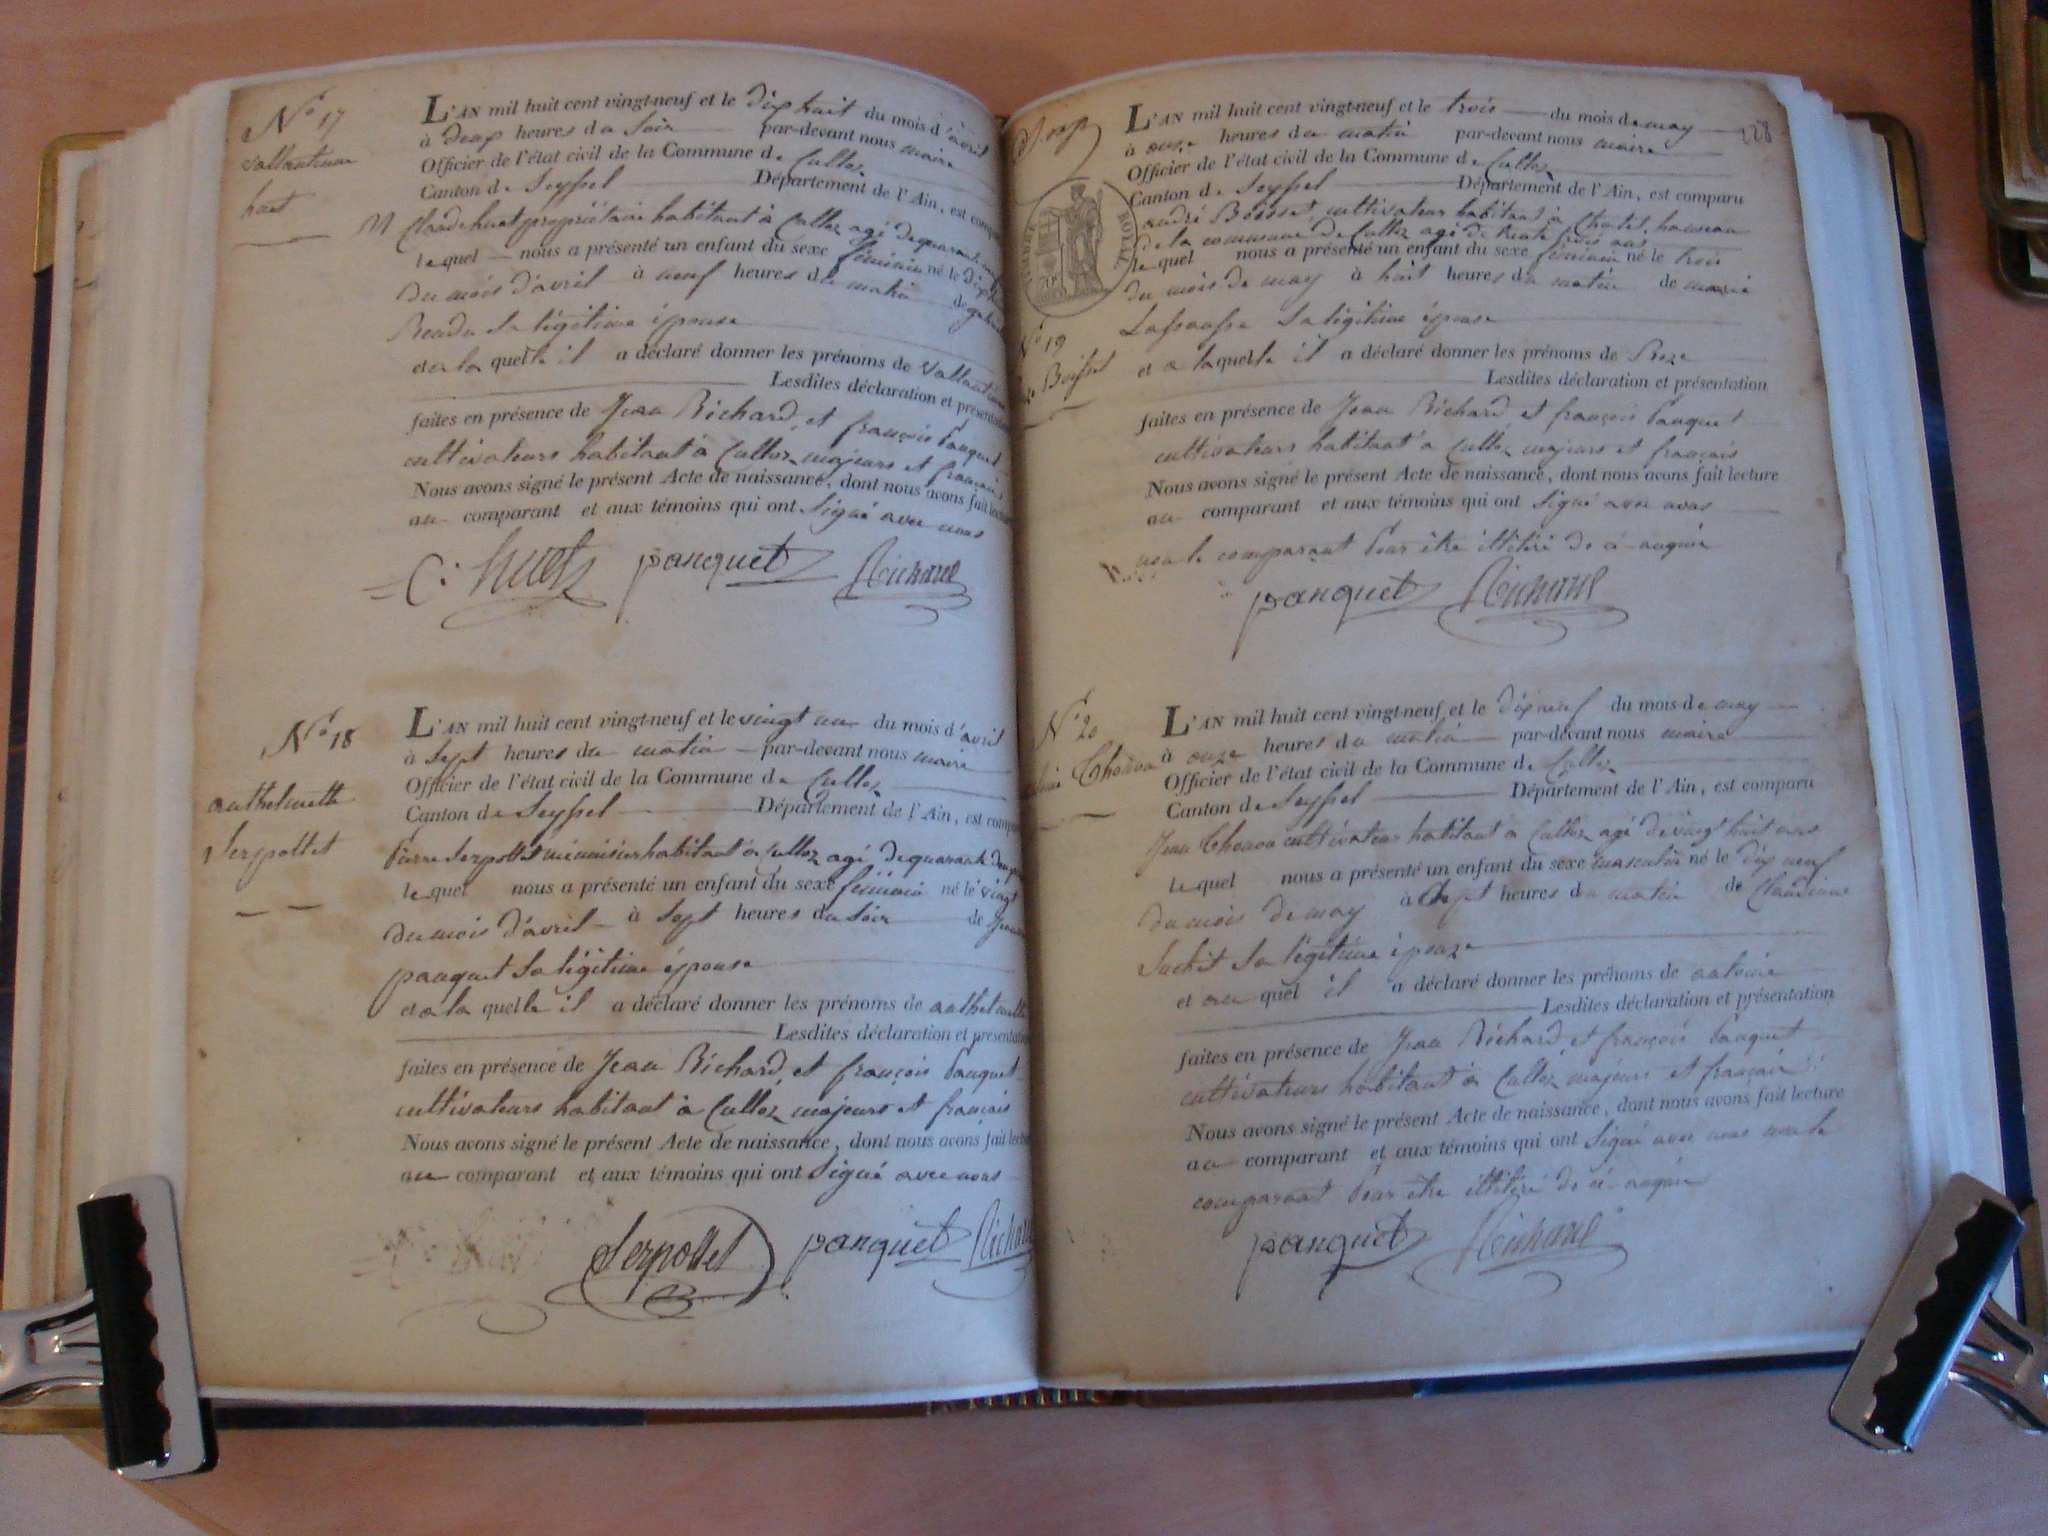 N° 17
huet
L'AN mil huit cent vingt-neuf et le dix huit du mois d'avril
à deux heures du soir par-devant nous maire
Officier de l'état civil de la Commune de Culloz
Canton de Seyssel Département de l'Ain, est comparu
M Claude huet propriétaire habitant à Culloz agé de quarante
lequel nous a présenté un enfant du sexe féminin né le dix
du mois d'avril à neuf heures du matin de
sa légitime épouse
et a la quelle il a déclaré donner les prénoms de
Lesdites déclaration et présentation
faites en présence de Jean Richard, et françois Panquet
cultivateurs habitant à Culloz majeurs et français
Nous avons signé le présent Acte de naissance, dont nous avons fait lecture
au comparant et aux témoins qui ont signé avec nous
C. huet panquet Richard
N° 18
anthelmette
Serpollet
L'AN mil huit cent vingt-neuf et le vingt un du mois d'avril
à sept heures du matin par-devant nous maire
Officier de l'état civil de la Commune de Culloz
Canton de Seyssel Département de l'Ain, est comparu
Pierre Serpollet menuisier habitant à Culloz agé de quarante deux
lequel nous a présenté un enfant du sexe féminin né le vingt
du mois d'avril à sept heures du soir de
panquet sa légitime épouse
et a la quelle il a déclaré donner les prénoms de anthelmette
Lesdites déclaration et présentation
faites en présence de Jean Richard, et françois Panquet
cultivateurs habitant à Culloz majeurs et français
Nous avons signé le présent Acte de naissance, dont nous avons fait lecture
au comparant et aux témoins qui ont signé avec nous
Serpollet panquet Richard
228
TIMBRE ROYAL
N° 19
Boisset
L'AN mil huit cent vingt-neuf et le trois du mois de may
à onze heures du matin par-devant nous maire
Officier de l'état civil de la Commune de Culloz
Canton de Seyssel Département de l'Ain, est comparu
andré Boisset, cultivateur habitant à Chatel, hameau
de la commune de Culloz agé de trente trois ans
lequel nous a présenté un enfant du sexe féminin né le trois
du mois de may à huit heures du matin de marie
Lassausse sa légitime épouse
et a laquelle il a déclaré donner les prénoms de
Lesdites déclaration et présentation
faites en présence de Jean Richard, et françois Panquet
cultivateurs habitant à Culloz majeurs et français
Nous avons signé le présent Acte de naissance, dont nous avons fait lecture
au comparant et aux témoins qui ont signé avec nous
non le comparant Pour être illitéré de ce enquis
panquet Richard
N° 20
Chonon
L'AN mil huit cent vingt-neuf et le dix neuf du mois de may
à onze heures du matin par-devant nous maire
Officier de l'état civil de la Commune de Culloz
Canton de Seyssel Département de l'Ain, est comparu
Jean Chonon cultivateur habitant à Culloz agé de vingt huit ans
lequel nous a présenté un enfant du sexe masculin né le dix neuf
du mois de may à sept heures du matin de Claudine
Suchet sa légitime épouze
et au quel il a déclaré donner les prénoms de antoine
Lesdites déclaration et présentation
faites en présence de Jean Richard et françois Panquet
cultivateurs habitant à Culloz majeurs et français
Nous avons signé le présent Acte de naissance, dont nous avons fait lecture
au comparant et aux témoins qui ont signé avec nous non le
comparant Pour être illitéré de ce enquis
panquet Richard